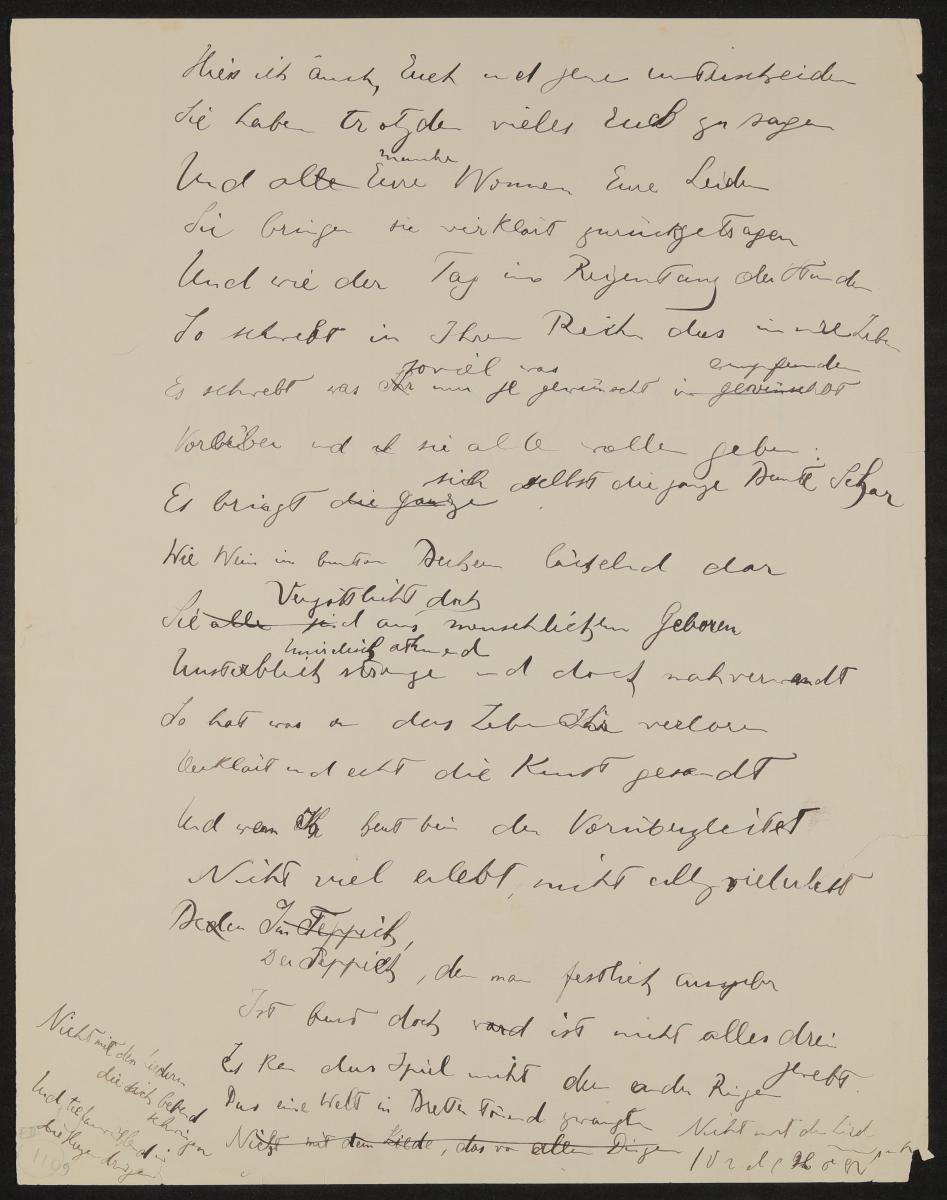 Hier ist auch, Euch und jene unterscheiden
Sie haben trotzdem vieles Euch zu sagen
manche
Und alle Eure Wonnen Eure Leiden
Sie bringen sie verklärt zurückgetragen
Und wie der Tag im Reigentanz der Stunden
So schwebt in Ihrem Reich das innre Leben
soviel was empfunden
Es schwebt was Ihr nur je gewünscht in gewünscht
Vorüber und sie alle wollen geben:
sich selbst die ganze Bunte Schar
Es bringt die ganze
Wie Wein in bunten Bechern lächelnd dar
Vergöttlicht doch
Sie alle sind aus menschlichem Geboren
Unirdisch atmend
Unsterblich strenge und doch nahverwandt
So hat was an das Leben Ihr verloren
Verklärt und echt die Kunst gesandt
Und wenn Ihr heut bei den Vorübergleitet
Nicht viel erlebt, nicht allzuviel
Im Teppich,
Der Teppich, den man festlich
Ist bunt doch ist nicht alles drein
gewebt.
Es das Spiel nicht den Ringen
Das eine Welt in
Nicht mit dem Liede, das von allen Dingen
Nicht mit dem Lied
Nicht mit den Liedern
die sich bebend
schwingen
Und tief
die Herzen dringen
1109